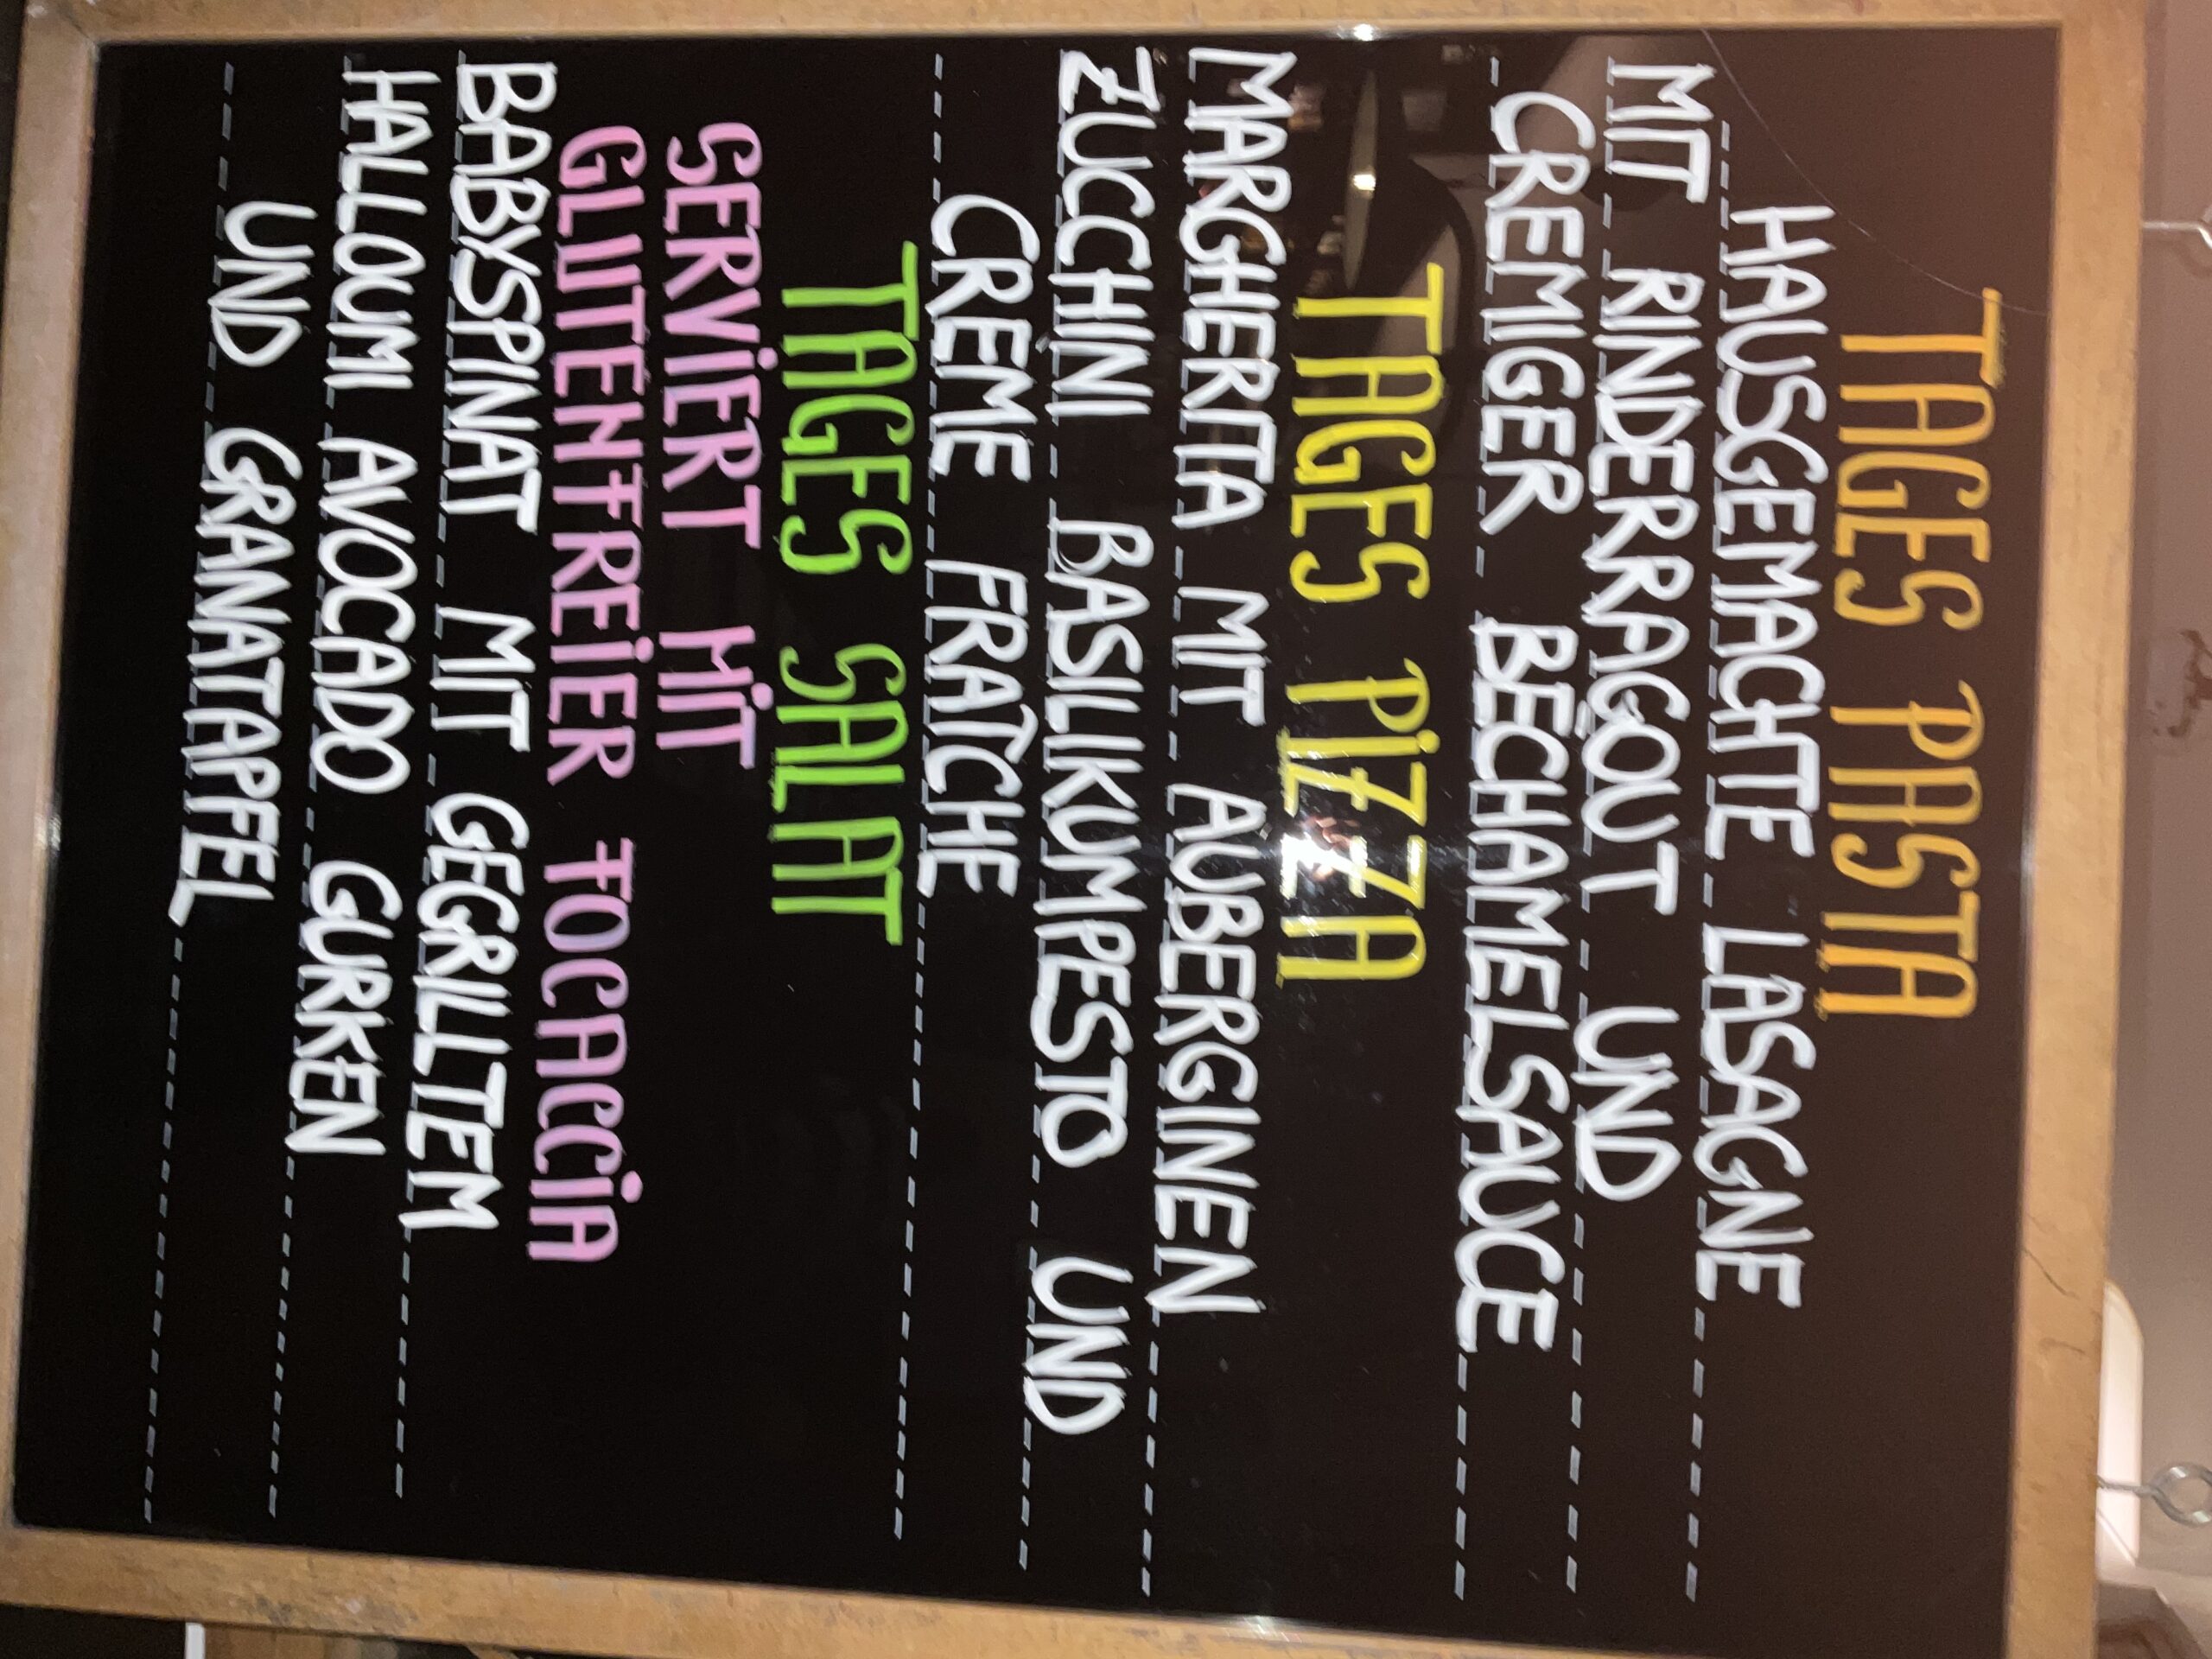 TAGES PASTA
HAUSGEMACHTE LASAGNE
MIT RINDERRAGOUT UND
CREMIGER BÉCHAMELSAUCE
TAGES PiZZA
MARGHERITA MIT AUBERGINEN
ZUCCHINI BASILIKUMPESTO UND
CREME FRAÎCHE
TAGES SALAT
SERViERT MiT
GLUTENFREiER FOCACCiA
BABYSPINAT MIT GEGRILLTEM
HALLOUMI AVOCADO GURKEN
UND GRANATAPFEL